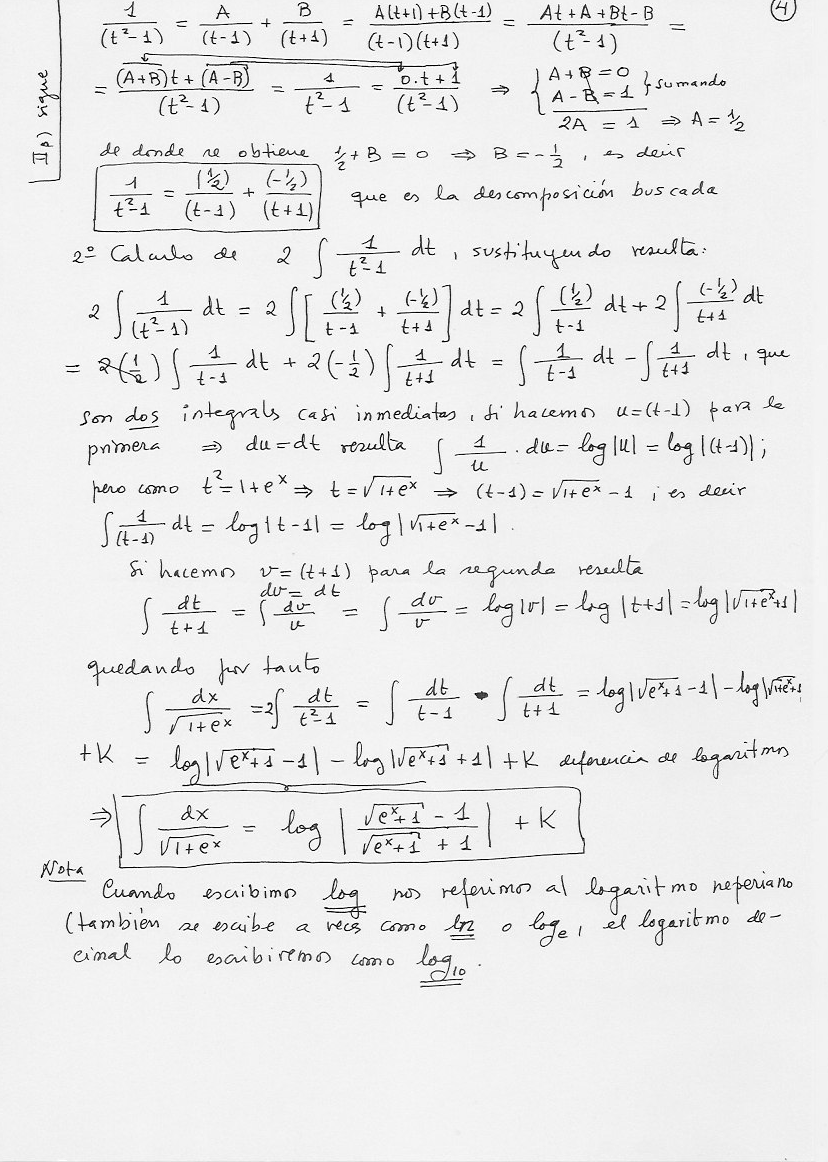 4
II p) sigue
1/(t²-1) = A/(t-1) + B/(t+1) = (A(t+1)+B(t-1))/((t-1)(t+1)) = (At+A+Bt-B)/(t²-1) =
= ((A+B)t+(A-B))/(t²-1) = 1/(t²-1) = (0.t+1)/(t²-1) ⇒ { A+B=0 A-B=1 } sumando
2A = 1 ⇒ A = 1/2
de donde se obtiene 1/2+B=0 ⇒ B=-1/2, es decir
1/(t²-1) = (1/2)/(t-1) + (-1/2)/(t+1) que es la descomposición buscada
2º Calculo de 2 ∫ 1/(t²-1) dt, sustituyendo resulta:
2 ∫ 1/(t²-1) dt = 2 ∫ [ (1/2)/(t-1) + (-1/2)/(t+1) ] dt = 2 ∫ (1/2)/(t-1) dt + 2 ∫ (-1/2)/(t+1) dt
= 2(1/2) ∫ 1/(t-1) dt + 2(-1/2) ∫ 1/(t+1) dt = ∫ 1/(t-1) dt - ∫ 1/(t+1) dt, que
son dos integrals casi inmediatas, si hacemos u=(t-1) para la
primera ⇒ du=dt resulta ∫ 1/u . du = log|u| = log|(t-1)|;
pero como t²=1+eˣ ⇒ t=√(1+eˣ) ⇒ (t-1)=√(1+eˣ) -1 ; es decir
∫ 1/(t-1) dt = log|t-1| = log|√(1+eˣ) -1|.
Si hacemos v=(t+1) para la segunda resulta
dv = dt
∫ dt/(t+1) = ∫ dv/v = ∫ dv/v = log|v| = log |t+1| = log|√(1+eˣ)+1|
quedando por tanto
∫ dx/√(1+eˣ) = 2∫ dt/(t²-1) = ∫ dt/(t-1) - ∫ dt/(t+1) = log|√(eˣ+1) -1| - log|√(1+eˣ)+1
+K = log|√(eˣ+1) -1| - log|√(eˣ+1) +1| + K diferencia de logaritmos
⇒ ∫ dx/√(1+eˣ) = log | (√(eˣ+1) - 1)/(√(eˣ+1) + 1) | + K
Nota
Cuando escribimos log nos referimos al logaritmo neperiano
(también se escibe a veces como ln o logₑ, el logaritmo de-
cimal lo escribiremos como log₁₀.